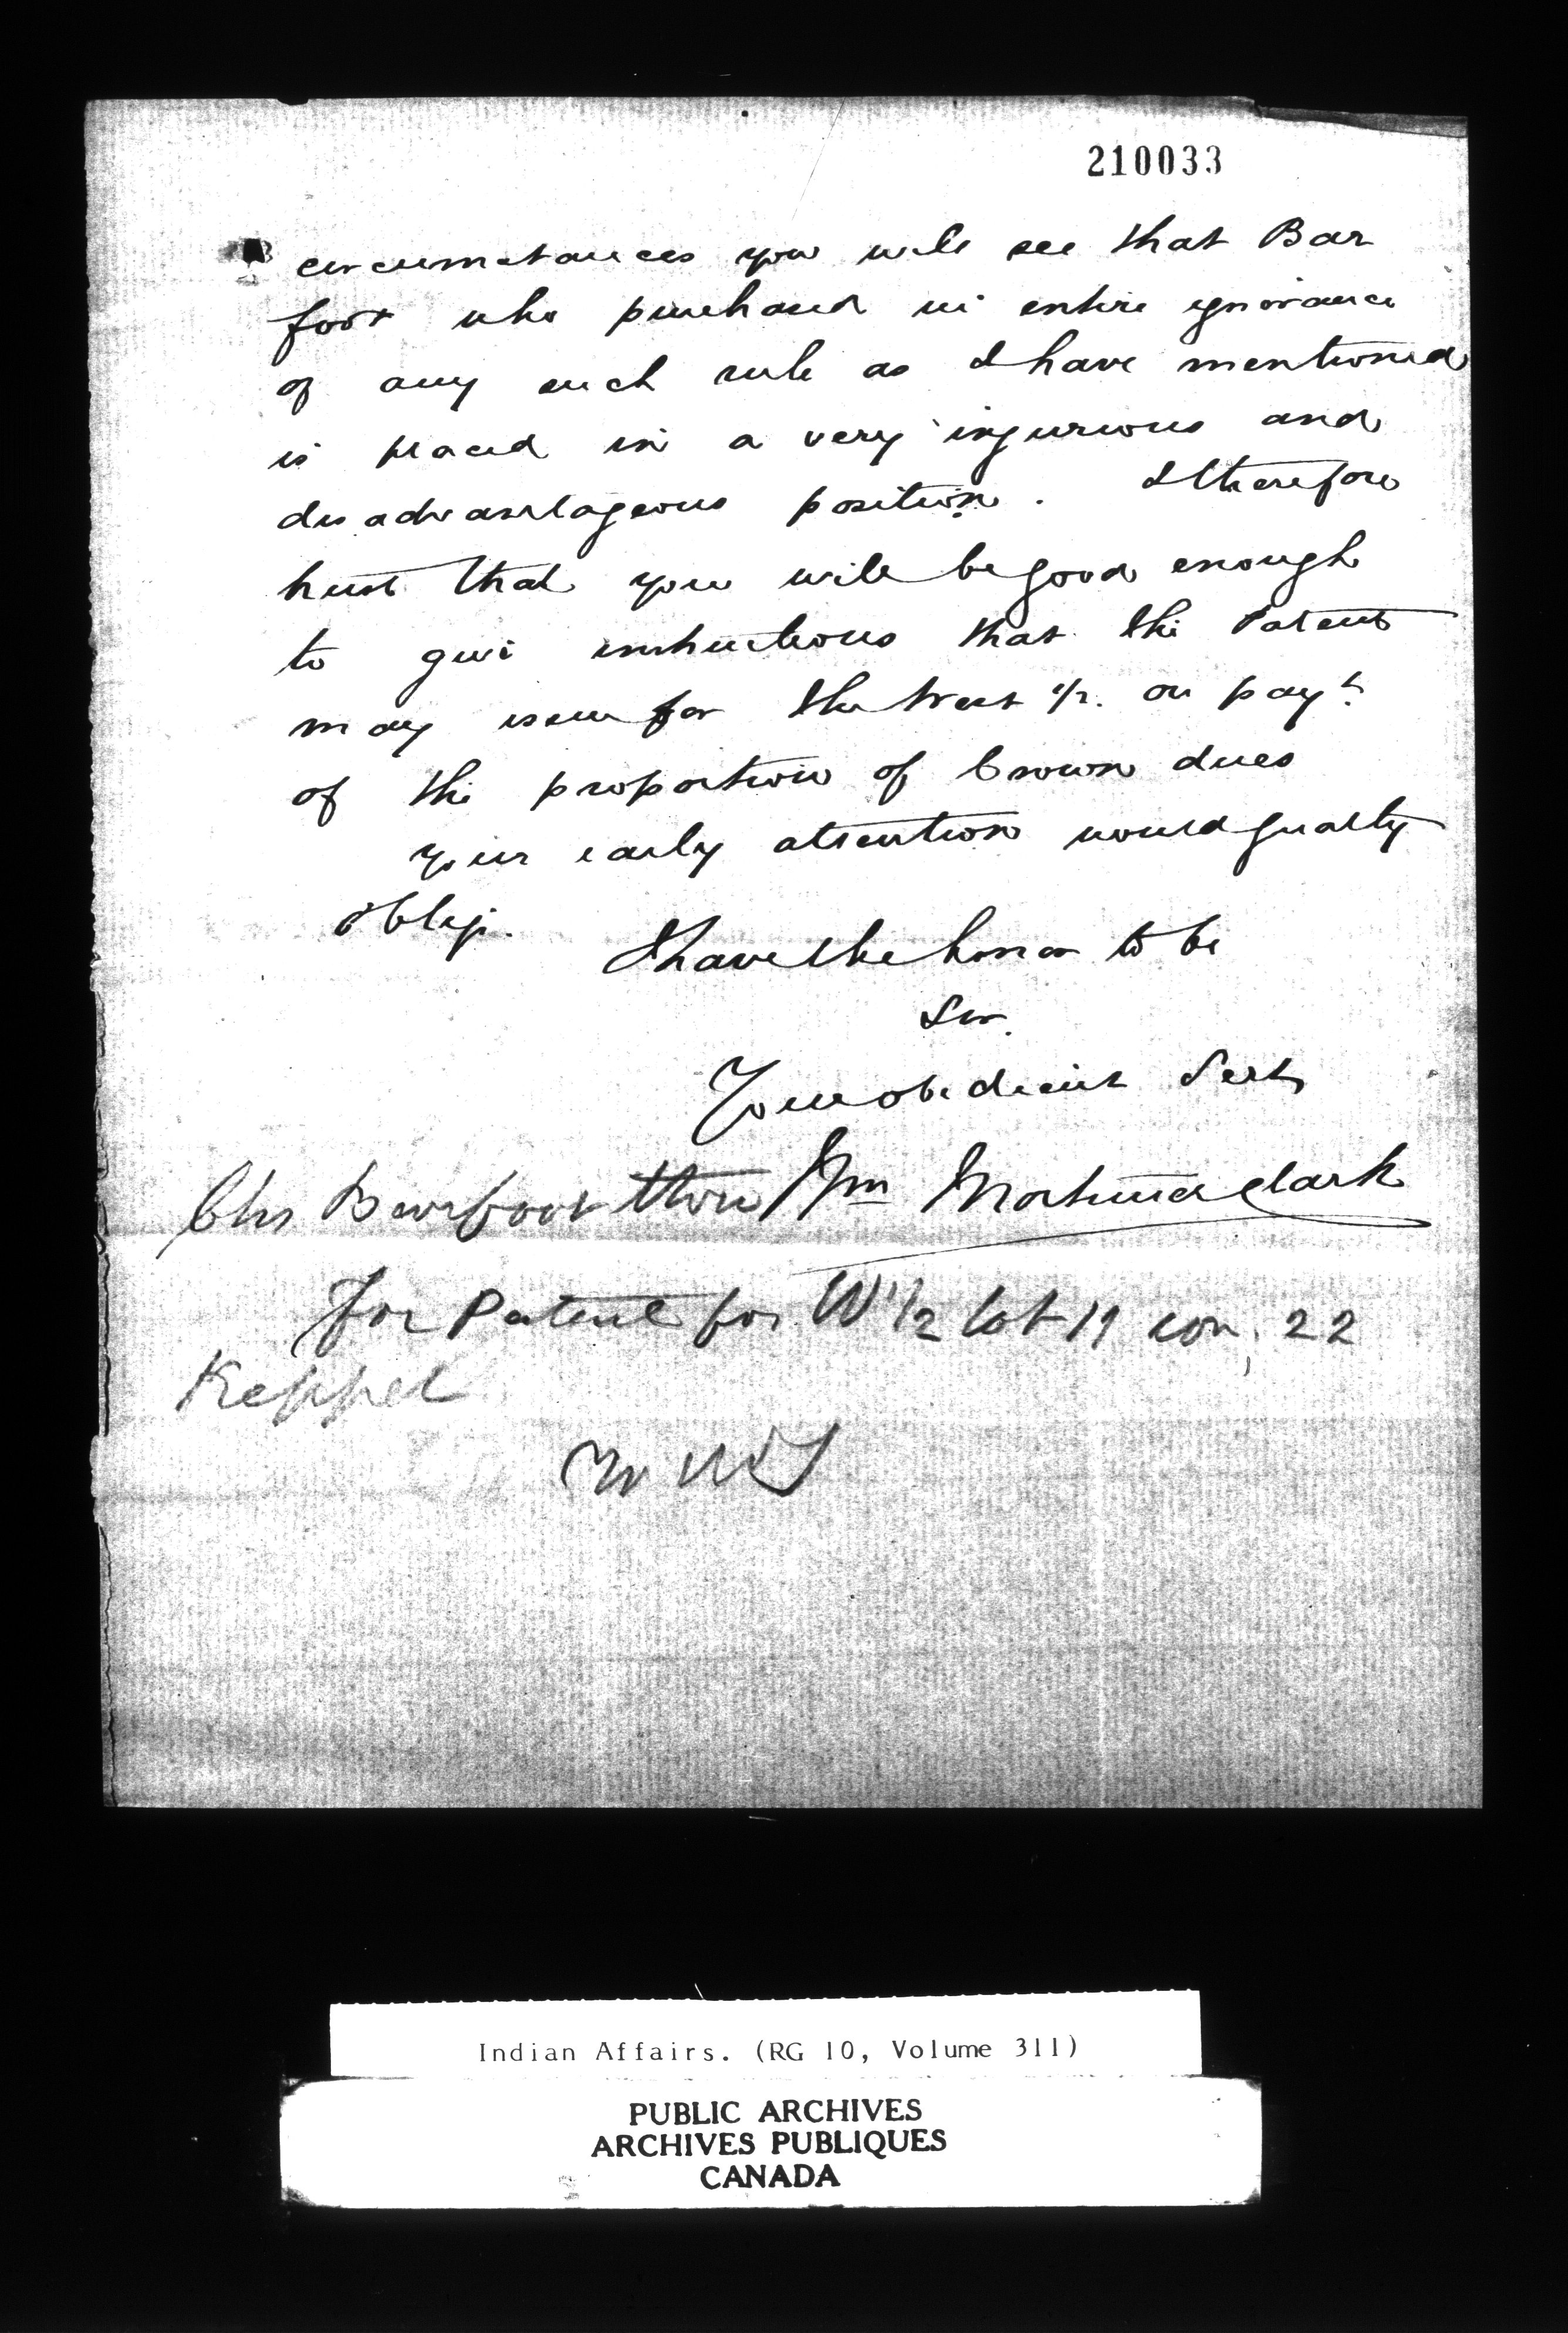 210033
circumstances you will see that Bar
foot who purchased in entire ignorance
of any such rule as I have mentioned
is placed in a very injurious and
disadvantageous position. I therefore
trust that you will be good enough
to give instructions that the Patent
may issue for the West 1/2. on payt.
of the proportion of Crown dues
Your early attention would greatly
oblige.
I have the honor to be
Sir.
Your obedient Servt
Wm Mortimer Clark
Chs Barfoot thro
for Patent for W 1/2 lot 19 con, 22
Keppel
Indian Affairs. (RG 10, Volume 311)
PUBLIC ARCHIVES
ARCHIVES PUBLIQUES
CANADA